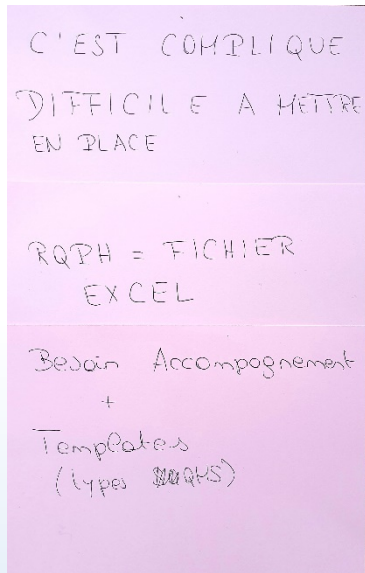 C'EST COMPLIQUE
DIFFICILE A METTRE
EN PLACE
RQPH = FICHIER
EXCEL
Besoin Accompagnement
+
Templates
(types QMS)